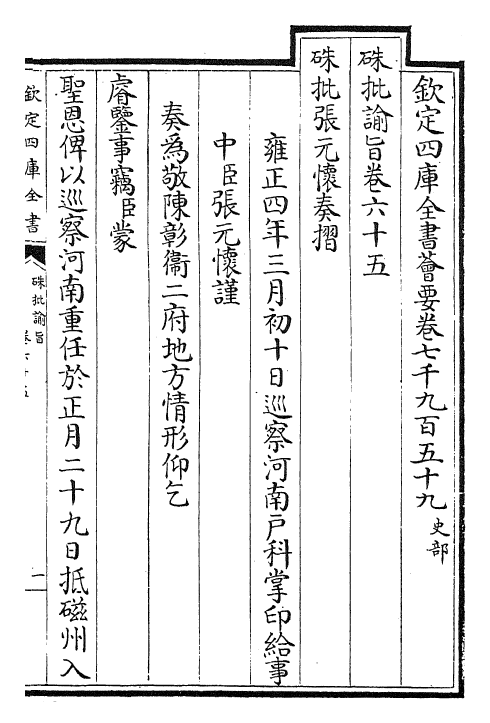 欽定四庫全書薈要卷七千九百五十九 史部
硃批諭旨卷六十五
硃批張元懷奏摺
雍正四年三月初十日巡察河南戶科掌印給事
中臣張元懷謹
奏為敬陳彰衞二府地方情形仰乞
睿鑒事竊臣蒙
聖恩俾以巡察河南重任於正月二十九日抵磁州入
欽定四庫全書
硃批諭旨
卷六十五
一